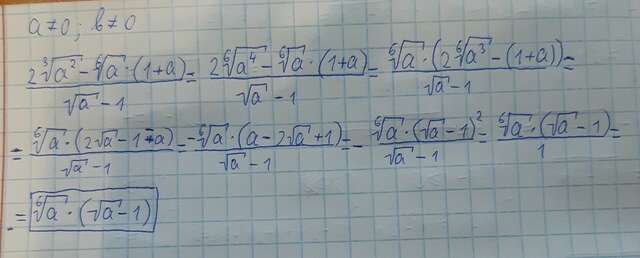 a≠0; b≠0
(2∛(a²) - ⁶√a · (1+a))/(√a - 1) = (2⁶√(a⁴) - ⁶√a · (1+a))/(√a - 1) = (⁶√a · (2⁶√(a³) - (1+a)))/(√a - 1) =
= (⁶√a · (2√a - 1 - a))/(√a - 1) = (-⁶√a · (a - 2√a + 1))/(√a - 1) = - (⁶√a · (√a - 1)²)/(√a - 1) = (⁶√a · (√a - 1))/1 =
= ⁶√a · (√a - 1)